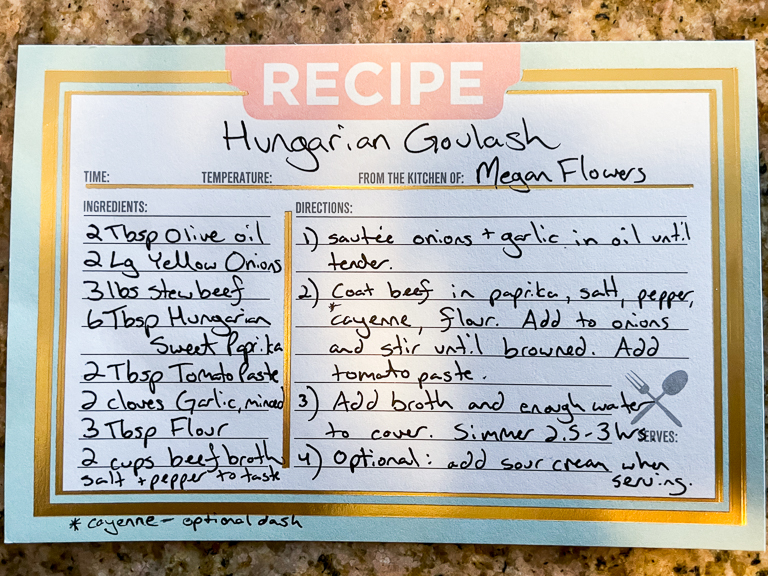 RECIPE
Hungarian Goulash
TIME: TEMPERATURE: FROM THE KITCHEN OF: Megan Flowers
INGREDIENTS:
2 Tbsp Olive oil
2 Lg Yellow Onions
3 lbs stew beef
6 Tbsp Hungarian
Sweet Paprika
2 Tbsp Tomato Paste
2 cloves Garlic, minced
3 Tbsp Flour
2 cups beef broth
salt + pepper to taste
* cayenne - optional dash
DIRECTIONS:
1) sautée onions + garlic in oil until
tender.
2) Coat beef in paprika, salt, pepper,
*cayenne, flour. Add to onions
and stir until browned. Add
tomato paste.
3) Add broth and enough water
to cover. Simmer 2.5-3 hrs
SERVES:
4) Optional: add sour cream when
serving.